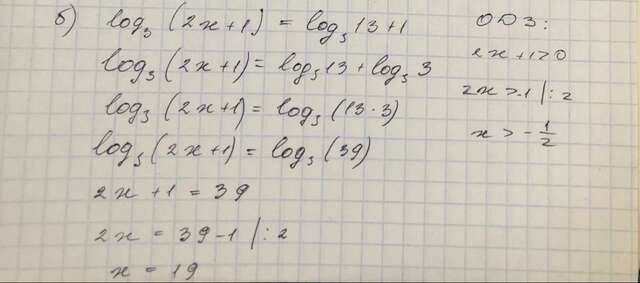 б) log₃ (2x+1) = log₃ 13+1
log₃ (2x+1) = log₃ 13 + log₃ 3
log₃ (2x+1) = log₃ (13·3)
log₃ (2x+1) = log₃ (39)
2x + 1 = 39
2x = 39-1 |:2
x = 19
ОДЗ:
2x+1>0
2x>-1 |:2
x > -1/2